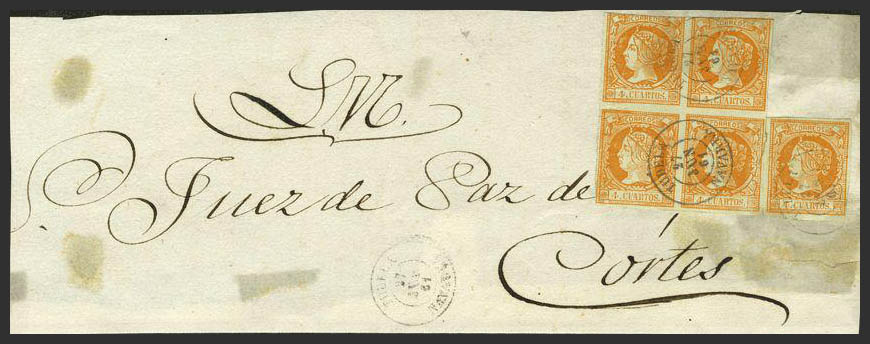 CORREOS CORREOS
4 CUARTOS. 4 CUARTOS.
S.M.
CORREOS CORREOS CORREOS
4 CUARTOS. 4 CUARTOS. 4 CUARTOS.
TUDELA NAVARRA
Juez de Paz de
Córtes
TUDELA NAVARRA